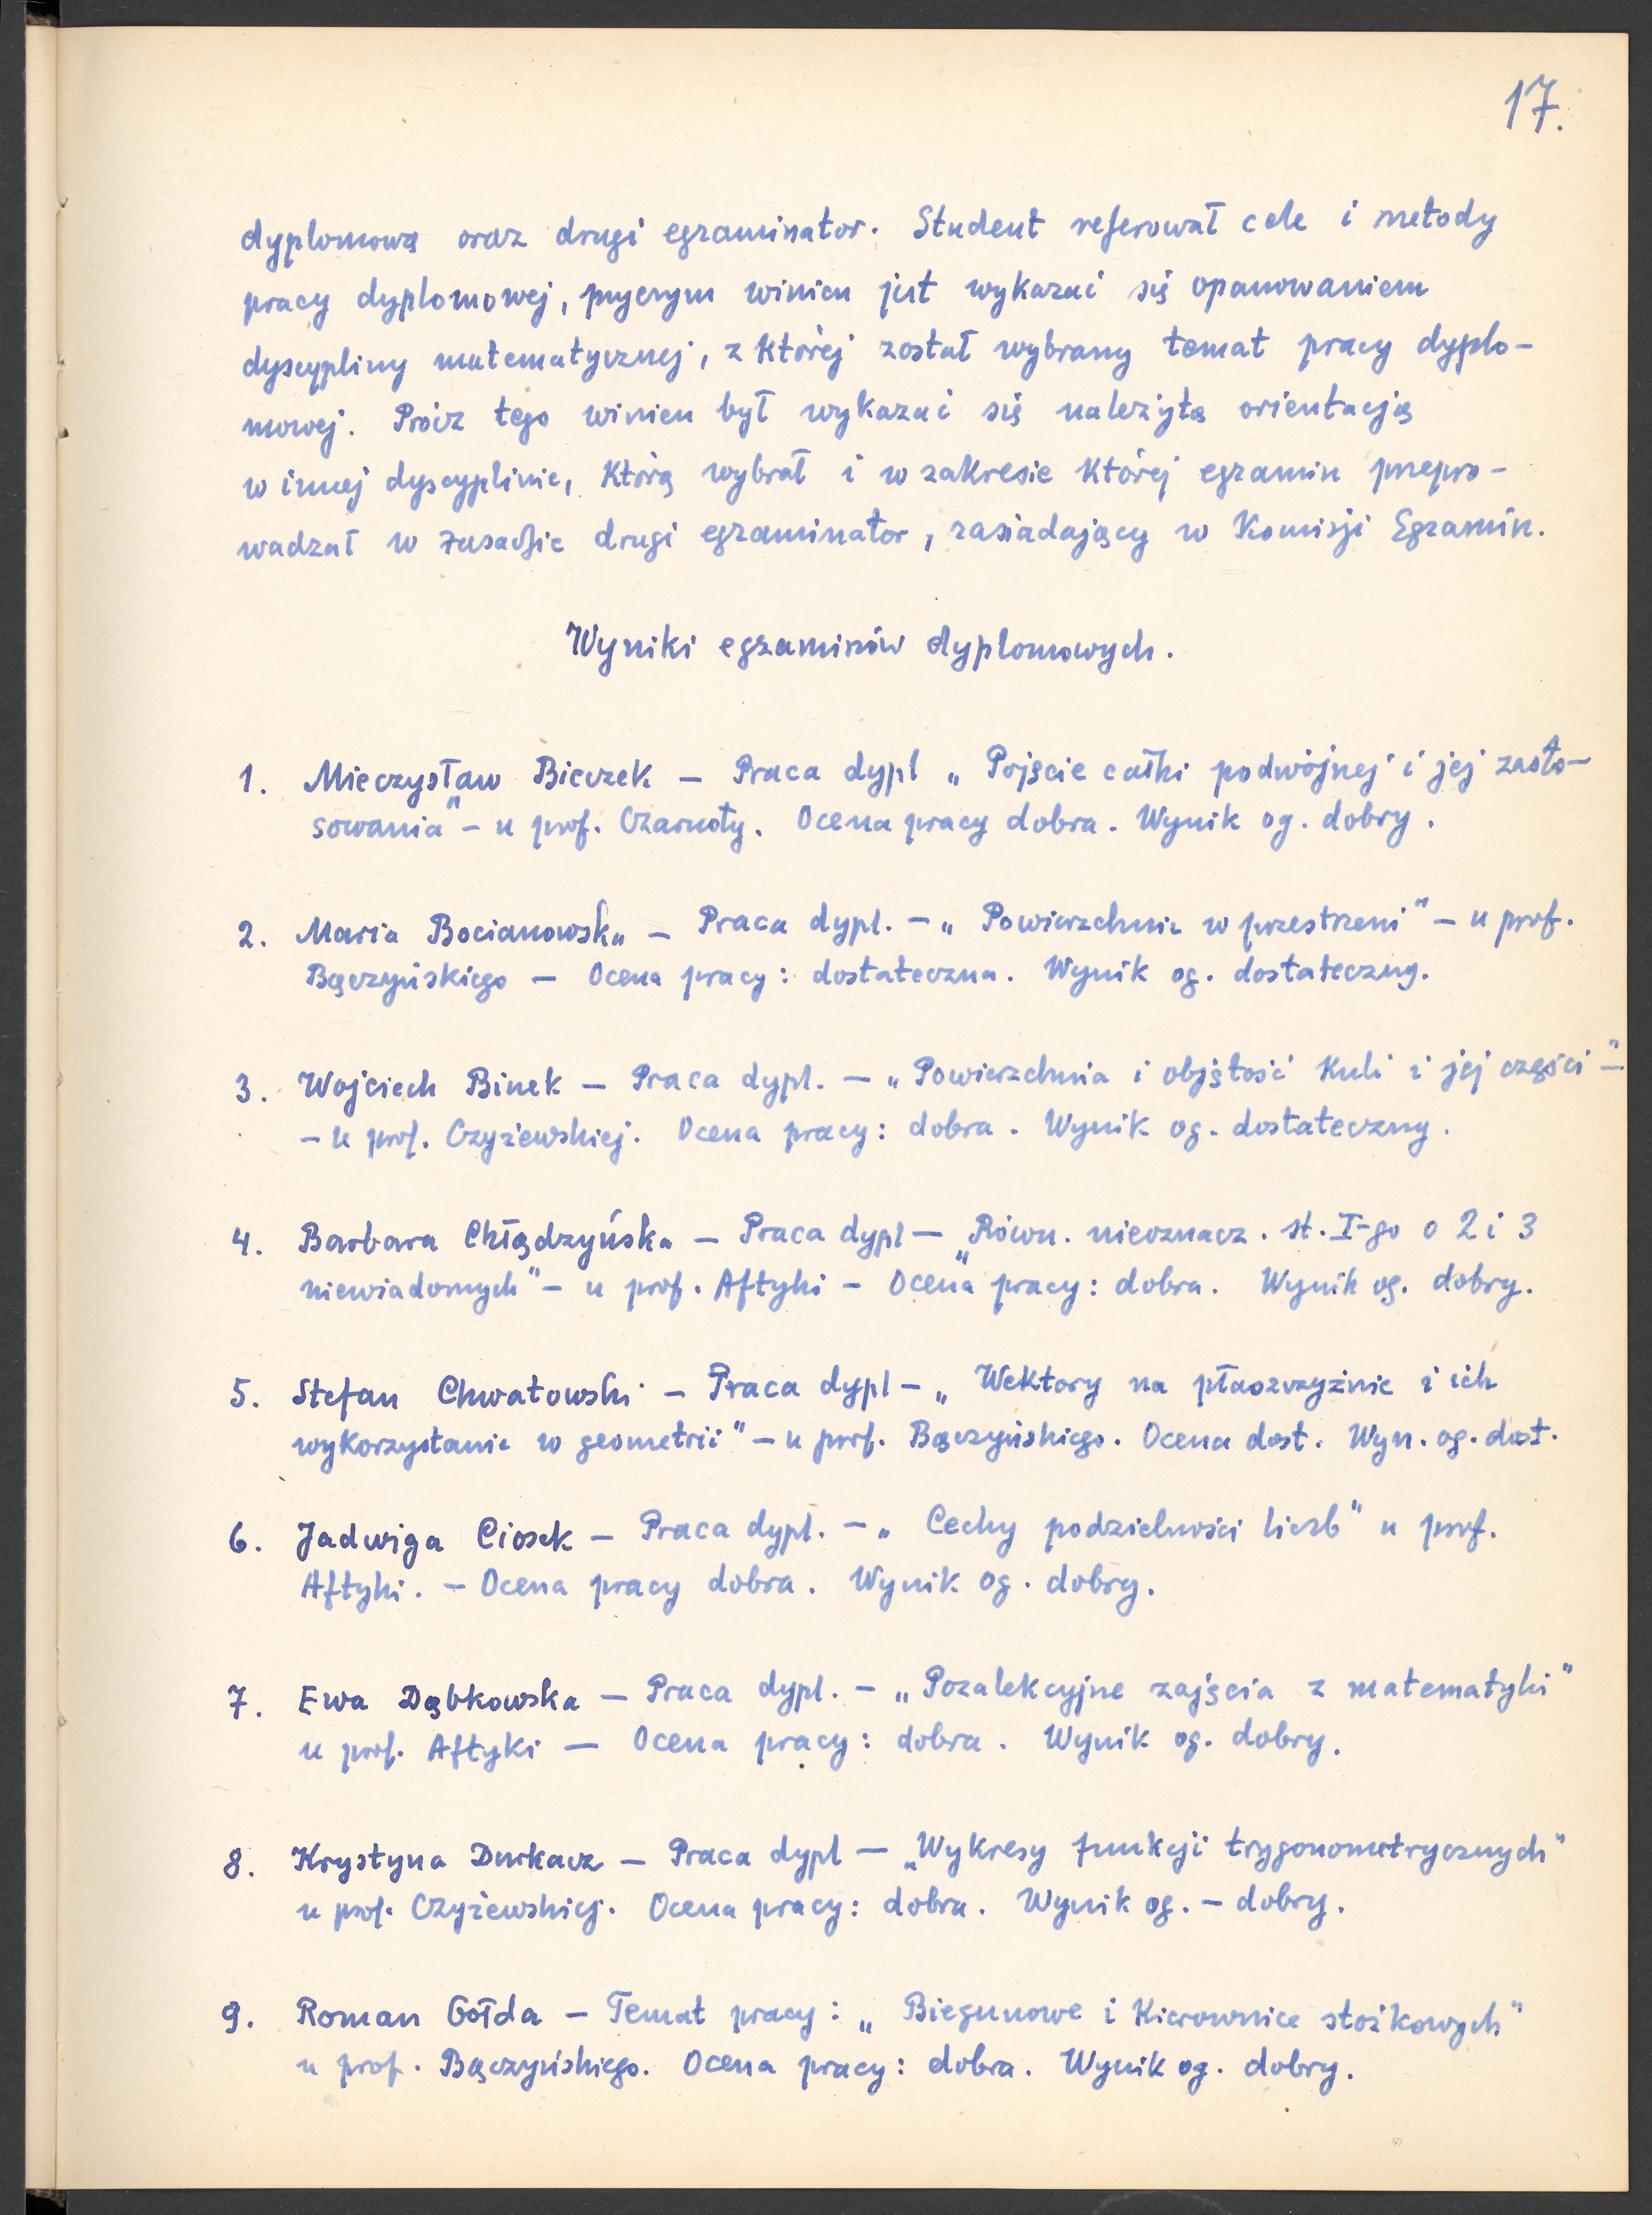 17.
dyplomową oraz drugi egzaminator. Student referował cele i metody
pracy dyplomowej, przyczym winien jest wykazać się opanowaniem
dyscypliny matematycznej, z której został wybrany temat pracy dyplo-
mowej. Prócz tego winien był wykazać się należytą orientacją
w innej dyscyplinie, którą wybrał i w zakresie której egzamin przepro-
wadzał w zasadzie drugi egzaminator, zasiadający w Komisji Egzamin.
Wyniki egzaminów dyplomowych.
1. Mieczysław Bieczek — Praca dypl „Pojęcie całki podwójnej i jej zasto-
sowania" — u prof. Czarnoty. Ocena pracy dobra. Wynik og. dobry.
2. Maria Bocianowska — Praca dypl. — „Powierzchnie w przestrzeni" — u prof.
Bączyńskiego — Ocena pracy: dostateczna. Wynik og. dostateczny.
3. Wojciech Binek — Praca dypl. — „Powierzchnia i objętość kuli i jej części" —
— u prof. Czyżewskiej. Ocena pracy: dobra. Wynik og. dostateczny.
4. Barbara Chłądzyńska — Praca dypl — „Równ. nieoznacz. st. I-go o 2 i 3
niewiadomych" — u prof. Aftyki — Ocena pracy: dobra. Wynik og. dobry.
5. Stefan Chwatowski — Praca dypl — „Wektory na płaszczyźnie i ich
wykorzystanie w geometrii" — u prof. Bączyńskiego. Ocena dost. Wyn. og. dost.
6. Jadwiga Ciosek — Praca dypl. — „Cechy podzielności liczb" u prof.
Aftyki. — Ocena pracy dobra. Wynik og. dobry.
7. Ewa Dąbkowska — Praca dypl. — „Pozalekcyjne zajęcia z matematyki"
u prof. Aftyki — Ocena pracy: dobra. Wynik og. dobry.
8. Krystyna Durkacz — Praca dypl — „Wykresy funkcji trygonometrycznych"
u prof. Czyżewskiej. Ocena pracy: dobra. Wynik og. — dobry.
9. Roman Gołda — Temat pracy: „Biegunowe i Kierownice stożkowych"
u prof. Bączyńskiego. Ocena pracy: dobra. Wynik og. dobry.